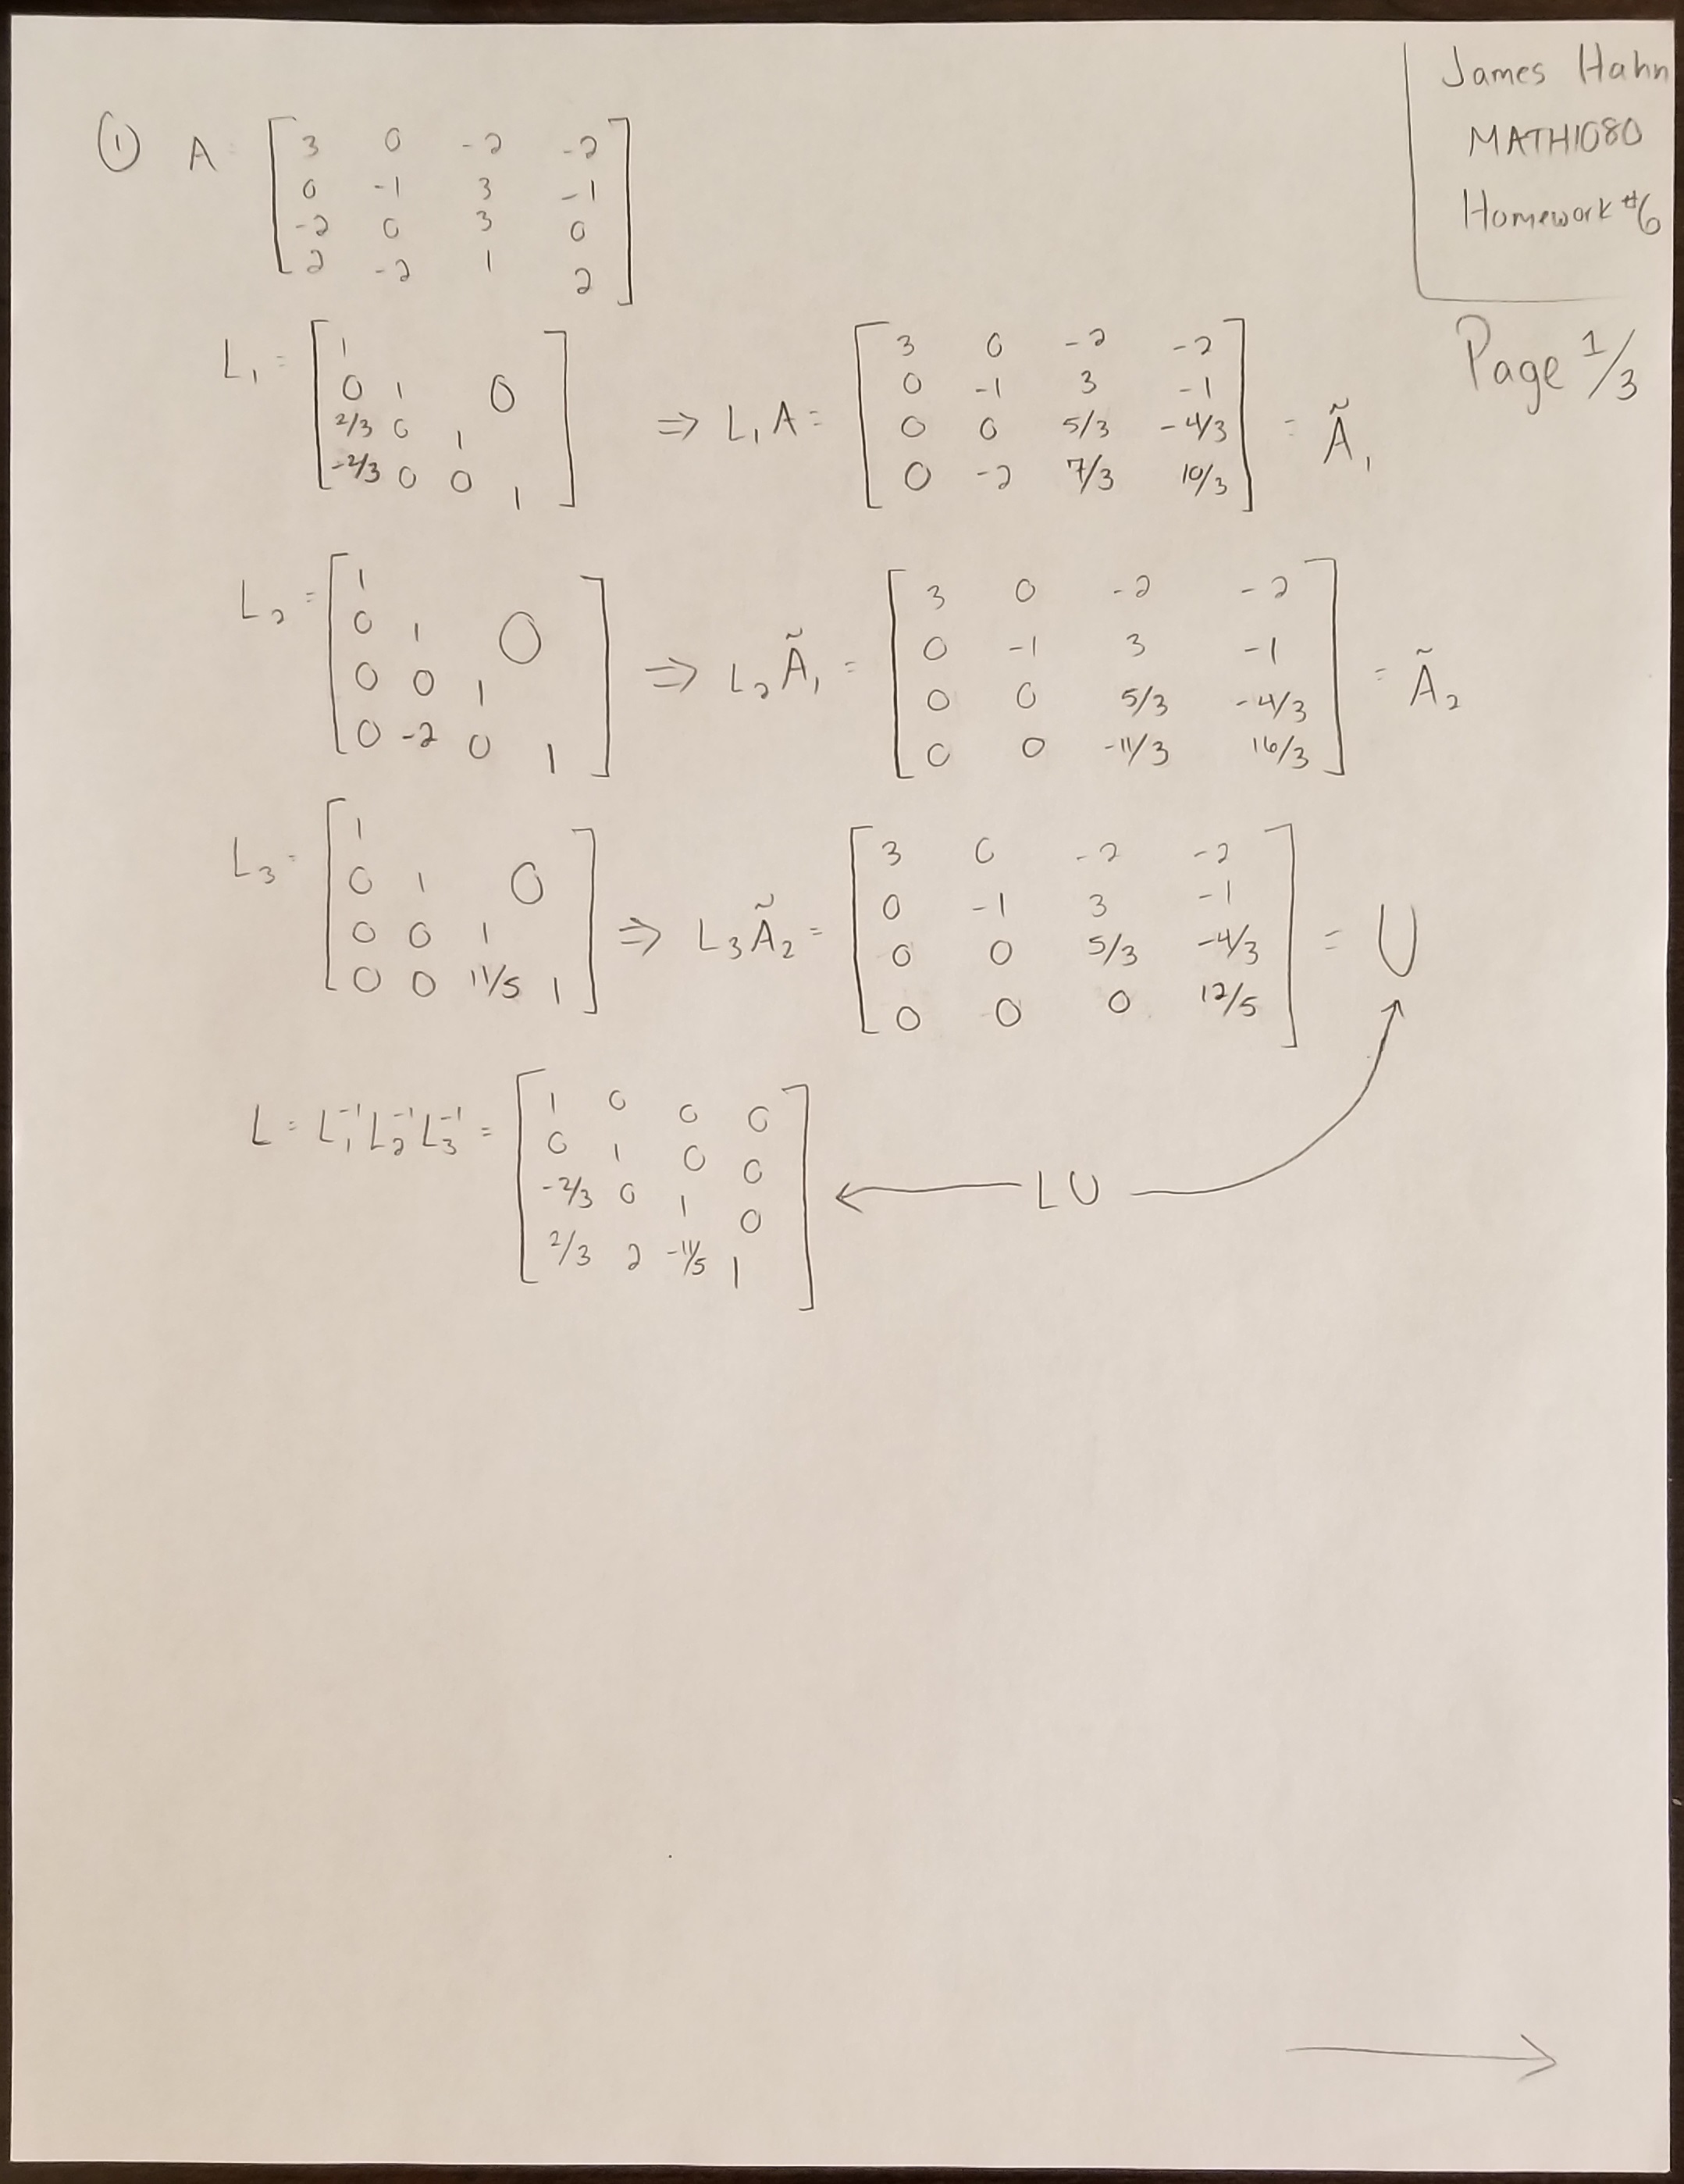 James Hahn
MATH1080
Homework #6
Page 1/3
① A = [ 3 0 -2 -2
0 -1 3 -1
-2 0 3 0
2 -2 1 2 ]
L₁ = [ 1
0 1 0
2/3 0 1
-2/3 0 0 1 ] ⇒ L₁A = [ 3 0 -2 -2
0 -1 3 -1
0 0 5/3 -4/3
0 -2 7/3 10/3 ] = Ã₁
L₂ = [ 1
0 1 0
0 0 1
0 -2 0 1 ] ⇒ L₂Ã₁ = [ 3 0 -2 -2
0 -1 3 -1
0 0 5/3 -4/3
0 0 -11/3 16/3 ] = Ã₂
L₃ = [ 1
0 1 0
0 0 1
0 0 11/5 1 ] ⇒ L₃Ã₂ = [ 3 0 -2 -2
0 -1 3 -1
0 0 5/3 -4/3
0 0 0 12/5 ] = U
L = L₁⁻¹L₂⁻¹L₃⁻¹ = [ 1 0 0 0
0 1 0 0
-2/3 0 1 0
2/3 2 -11/5 1 ] ← LU